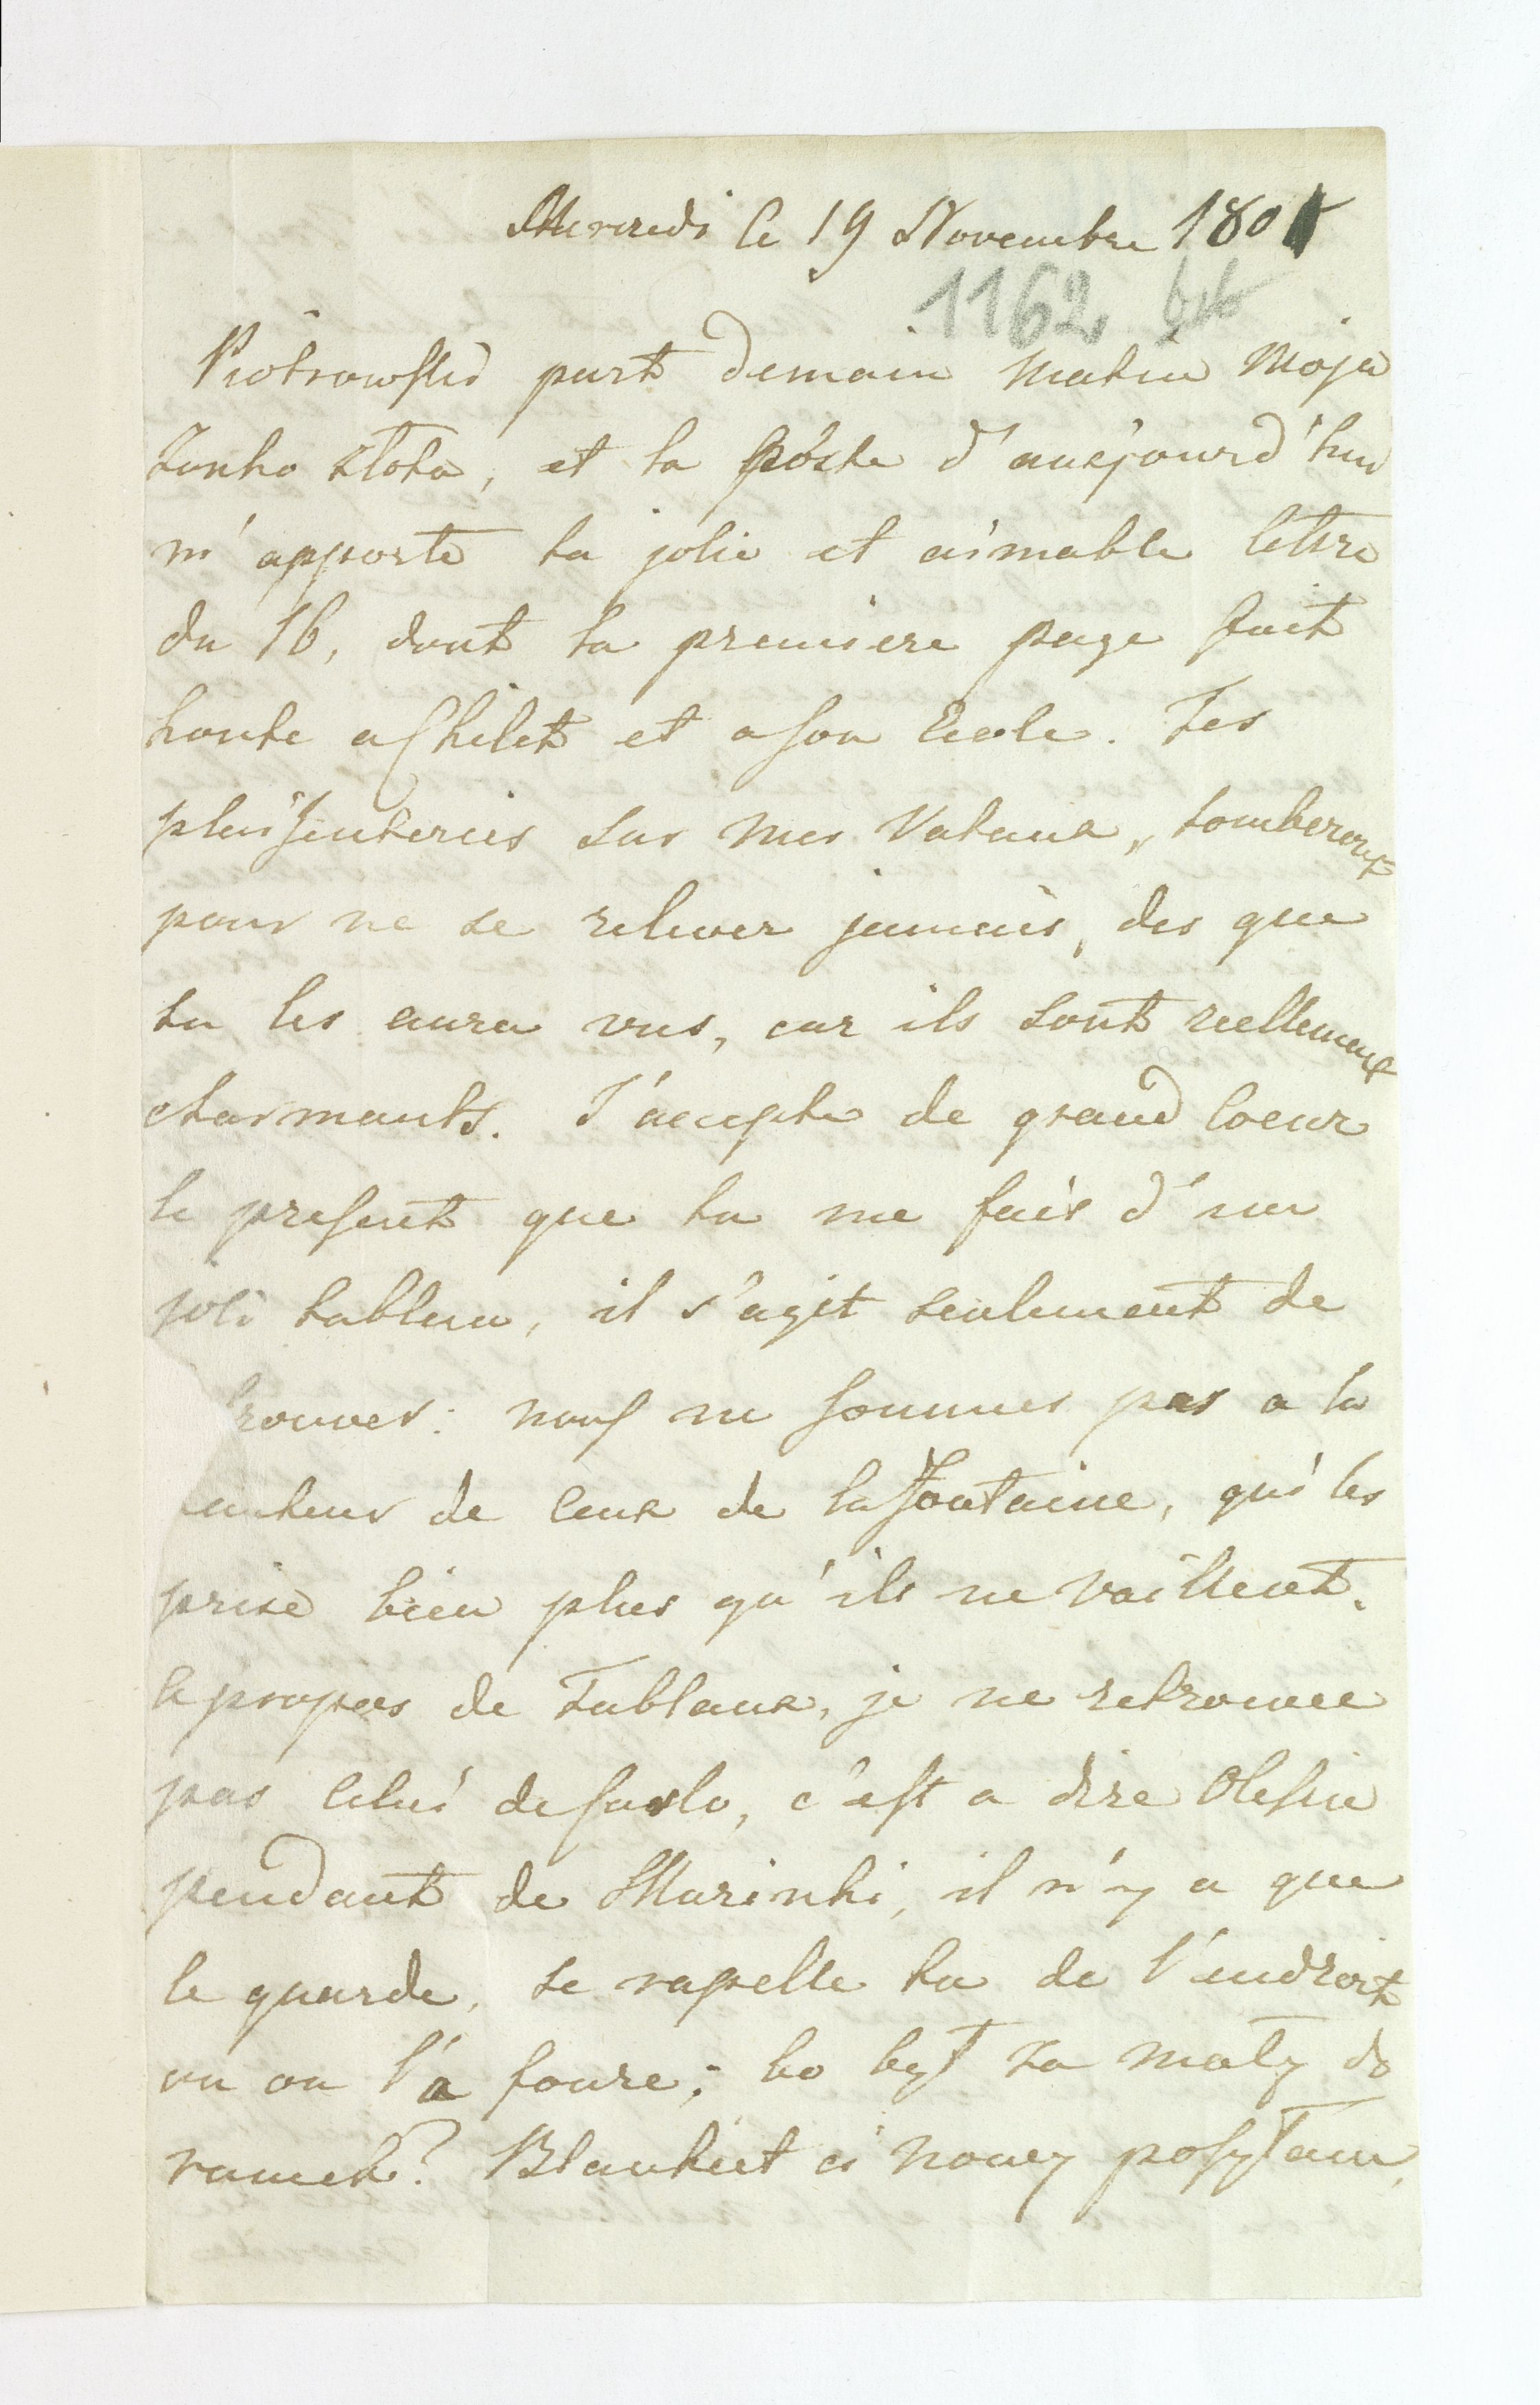 Mercredi le 19 Novembre 180
1162
Piotrowski part demain matin Moja
Zonko złota, et la poste d'auejourd'hui
m'apporte ta jolie et aimable lettre
du 16, dont la premiere page fait
honte a Chilet et a son Ecole. Tes
plaisenteries sur mes Vataux, tomberont
pour ne se relever jamais, des que
tu les aura vus, car ils sont reellement
charmants. J'accepte de grand Coeur
le present que tu me fais d'un
joli tableau, il s'agit seulement de
trouver: nous ne sommes pas a la
hauteur de Ceux de la Fontaine, qui les
prise bien plus qu'ils ne vaillent.
a propos de Tableaux, je ne retrouve
pas Celui de Carlo, c'est a dire Olesia
pendant de Marinki, il n'y a que
le quadre, se rapelle tu de l'endroit
ou on l'a foure; bo był za mały do
ramek? Blankiet ci nowy posyłam,